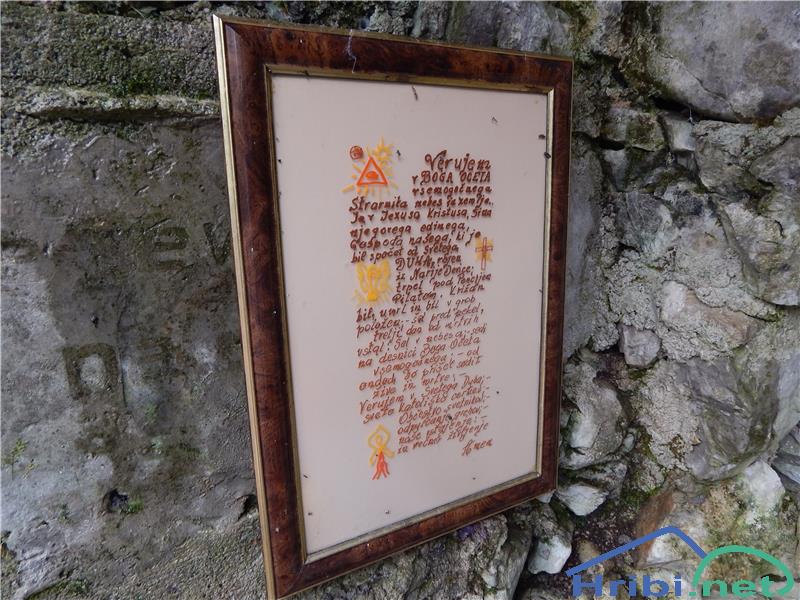 Verujem
v BOGA OČETA
vsemogočnega
Stvarnika nebes in zemlje.
In v Jezusa Kristusa, Sina
njegovega edinega,
Gospoda našega, ki je
bil spočet od Svetega
DUHA, rojen
iz Marije Device;
trpel pod Poncijem
Pilatom, križan
bil, umrl in bil v grob
položen; - šel pred pekel,
tretji dan od mrtvih
vstal; šel v nebesa; - sedi
na desnici Boga Očeta
vsemogočnega; - od
ondod bo prišel sodit
žive in mrtve; -
Verujem v Svetega Duha; -
sveto katoliško cerkev; -
Občestvo svetnikov; -
odpuščanje grehov; -
naše vstajenje; -
in večno življenje
Amen
Hribi.net